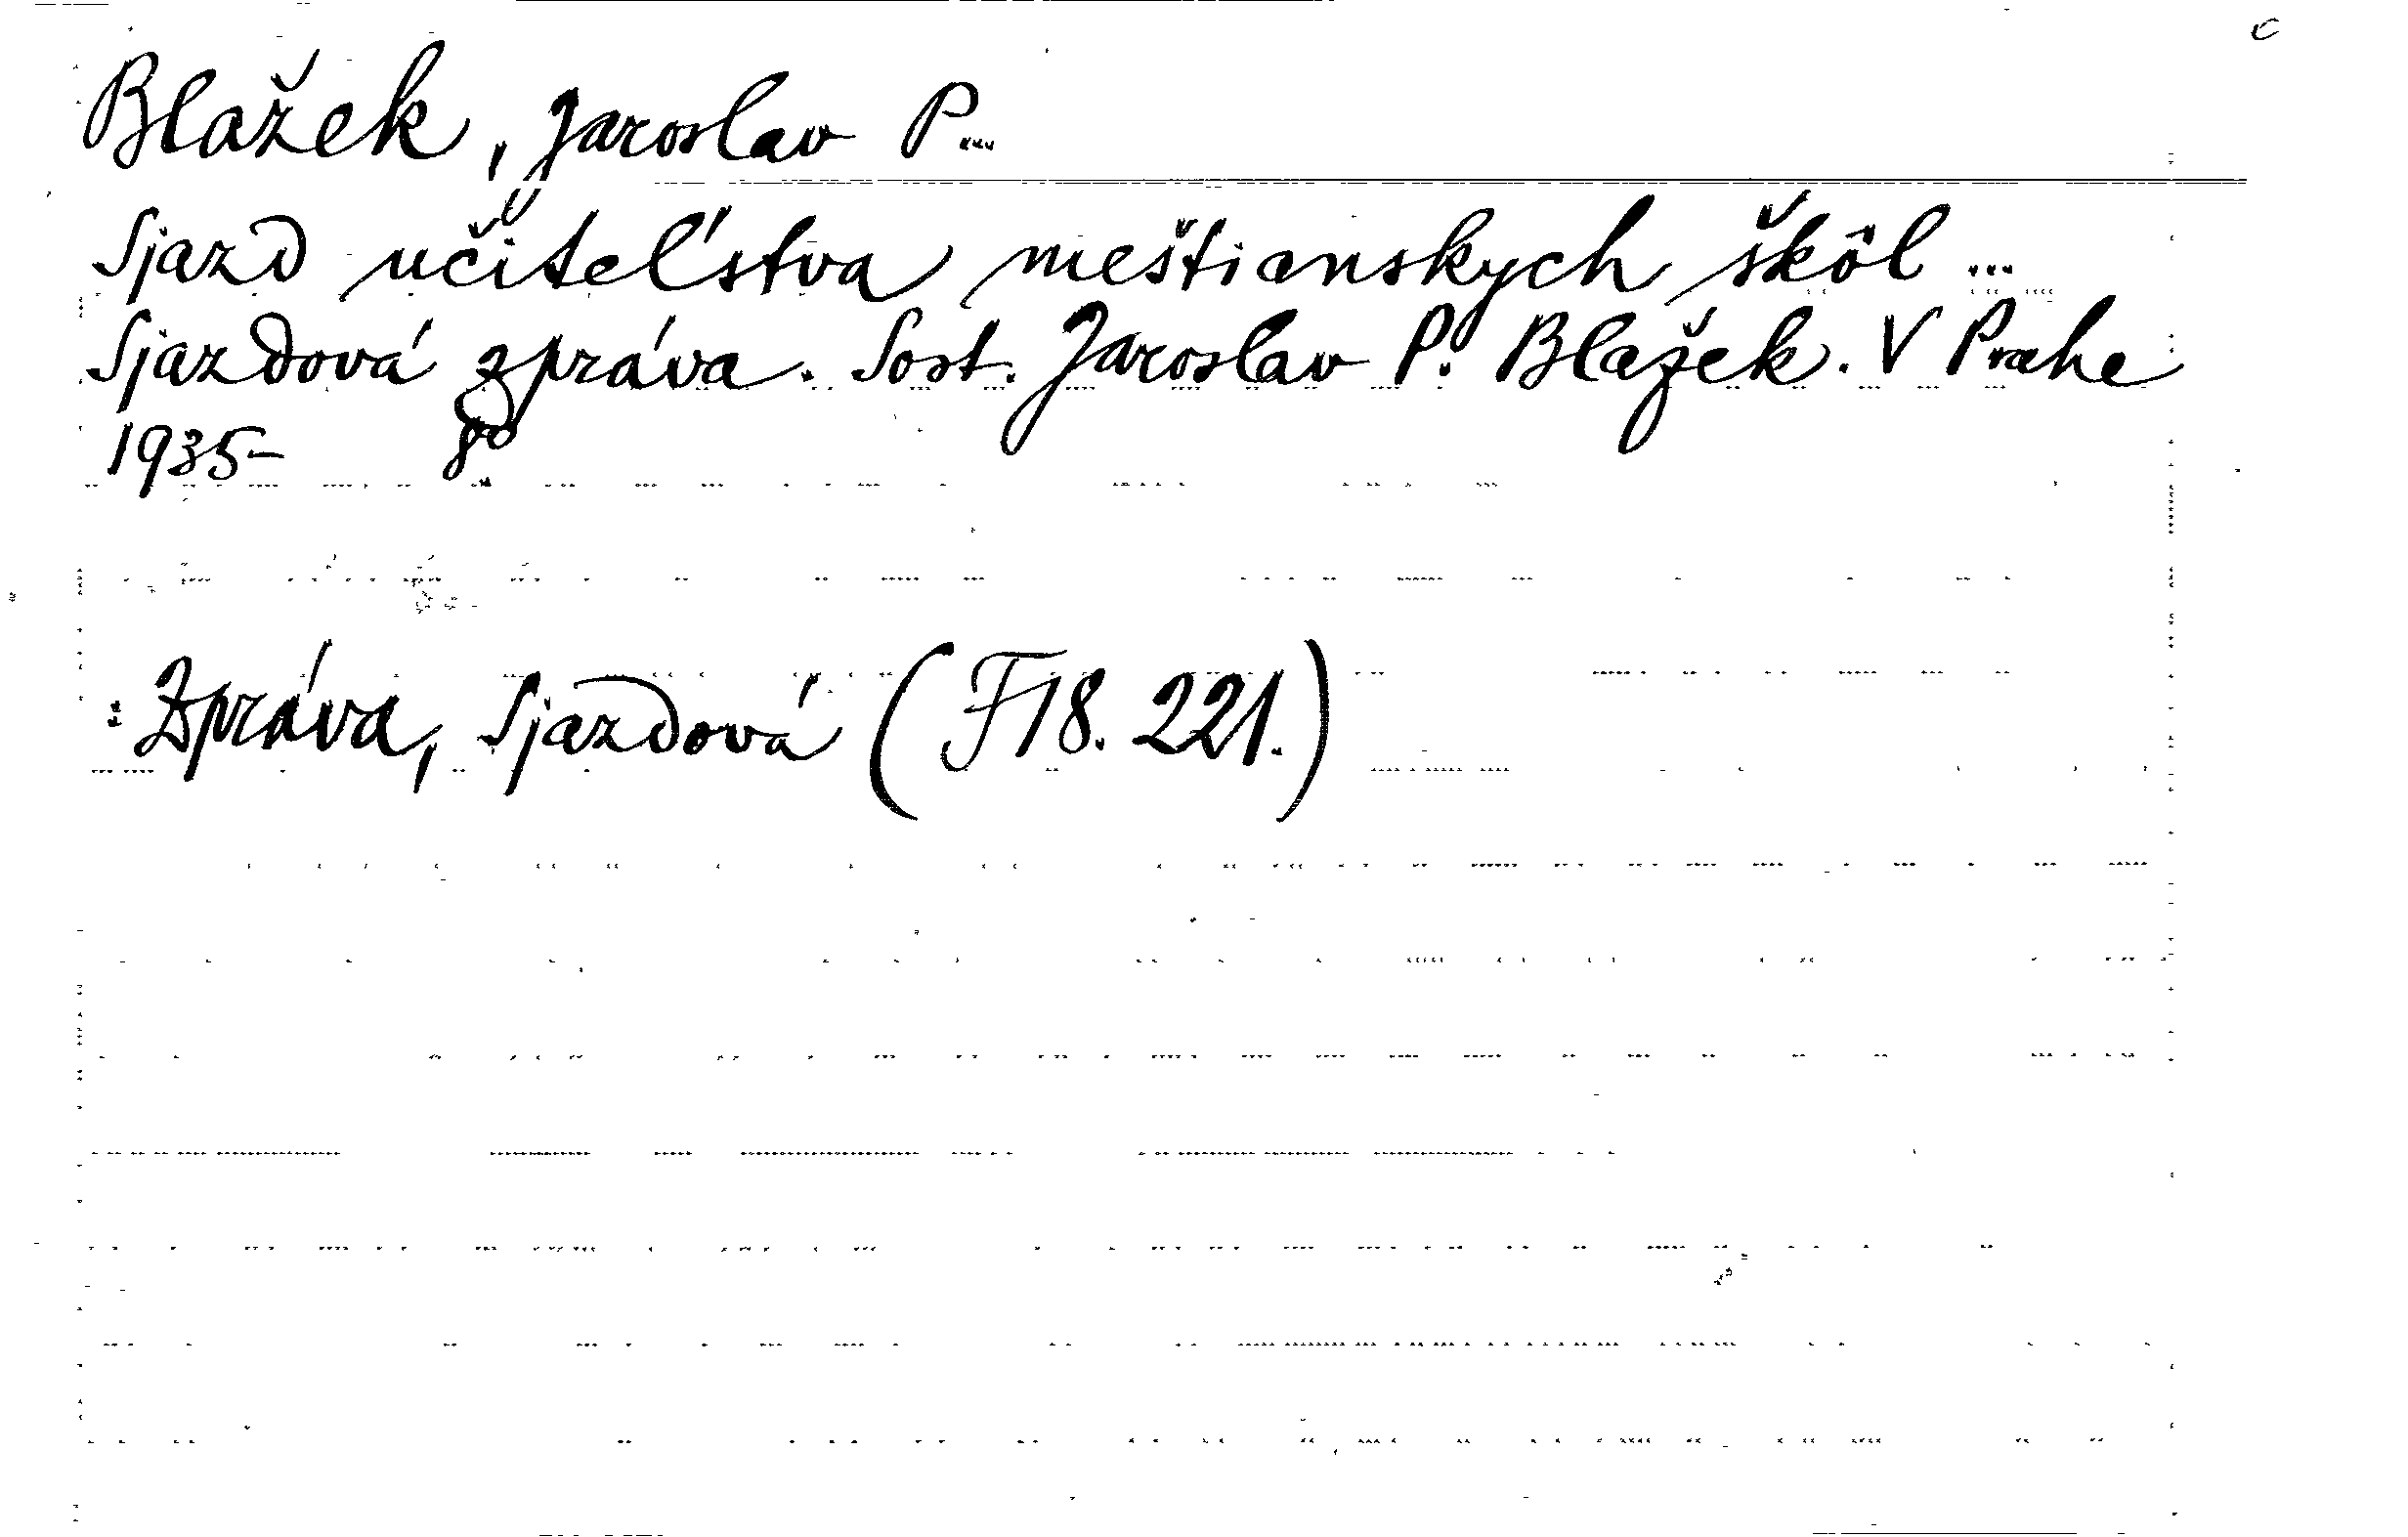 c
Blažek, Jaroslav P...
Sjazd učiteľstva meštianskych škôl ...
Sjazdová zpráva. Sost. Jaroslav P. Blažek. V Prahe
1935- 8°
: Zpráva, Sjazdová (F18.221.)